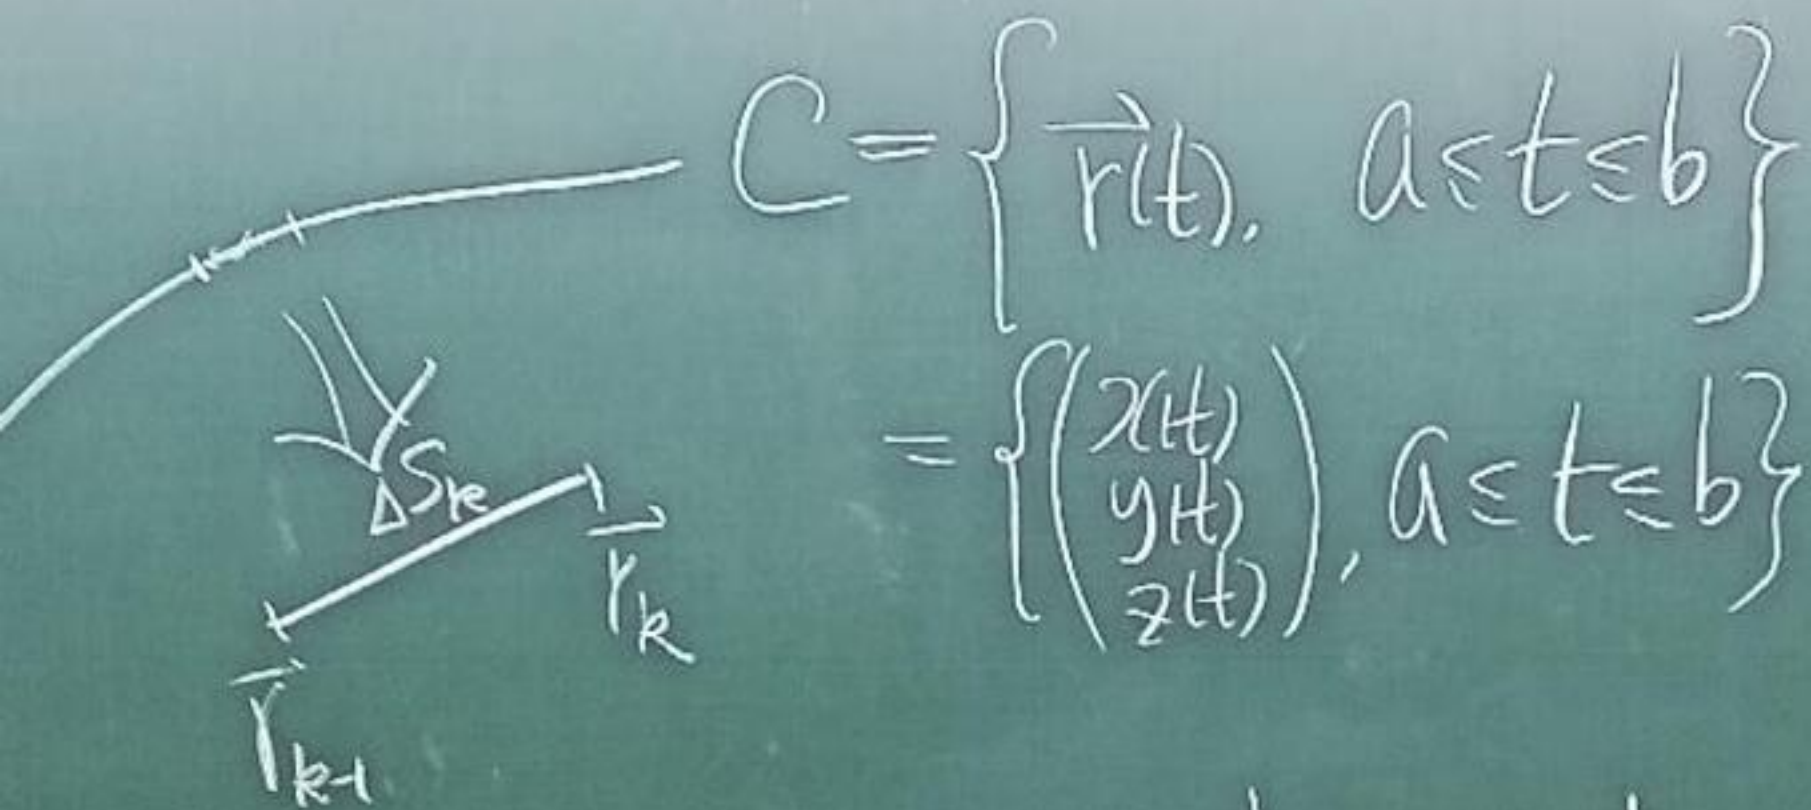 C = { \vec{r}(t), a ≤ t ≤ b }
= { ( x(t) y(t) z(t) ), a ≤ t ≤ b }
ΔS_k
\vec{r}_k
\vec{r}_{k-1}